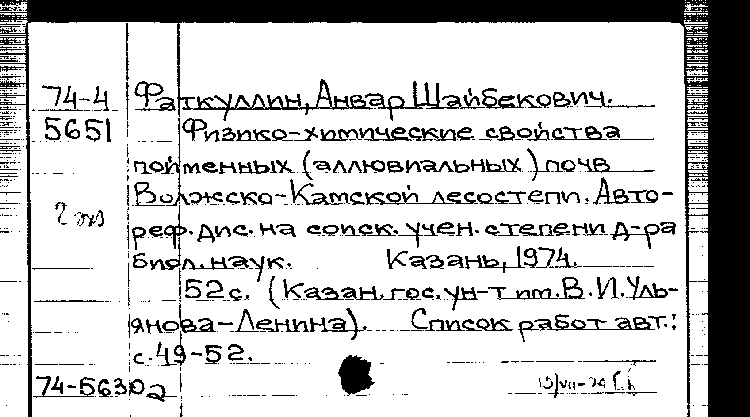 74-4 Фаткуллин, Анвар Шайбекович.
5651 Физико-химические свойства
пойменных (аллювиальных) почв
Волжско-Камской лесостепи. Авто-
2 экз
реф. дис. на соиск. учен. степени д-ра
биол. наук. Казань, 1974.
52 с. (Казан. гос. ун-т им. В. И. Уль-
янова-Ленина). Список работ авт.:
с. 49-52.
74-56302